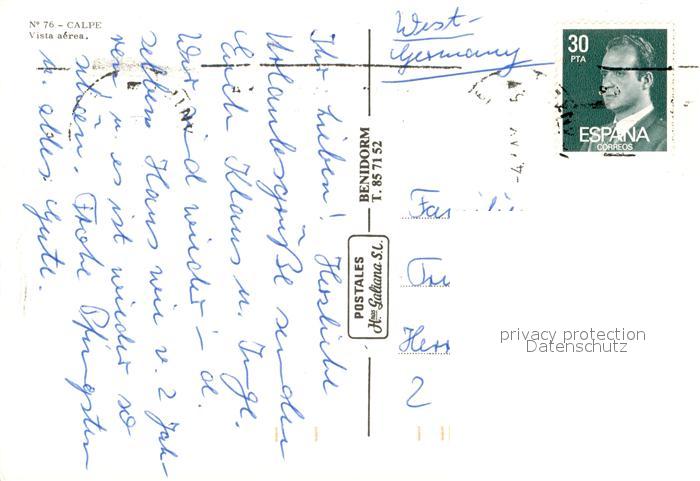 Nº 76 - CALPE
Vista aérea.
Ihr Lieben! Herzliche
Urlaubsgrüße senden
Euch Klaus u. Inge.
Wir sind wieder i. d.
selben Haus wie v. 2 Jah-
ren u. es ist wieder so
schön. Frohe Pfingsten
u. alles Gute.
BENIDORM
T. 85 71 52
POSTALES
Hnos Galiana S.L.
West-
Germany
30
PTA
ESPAÑA
CORREOS
Herr
2
privacy protection
Datenschutz